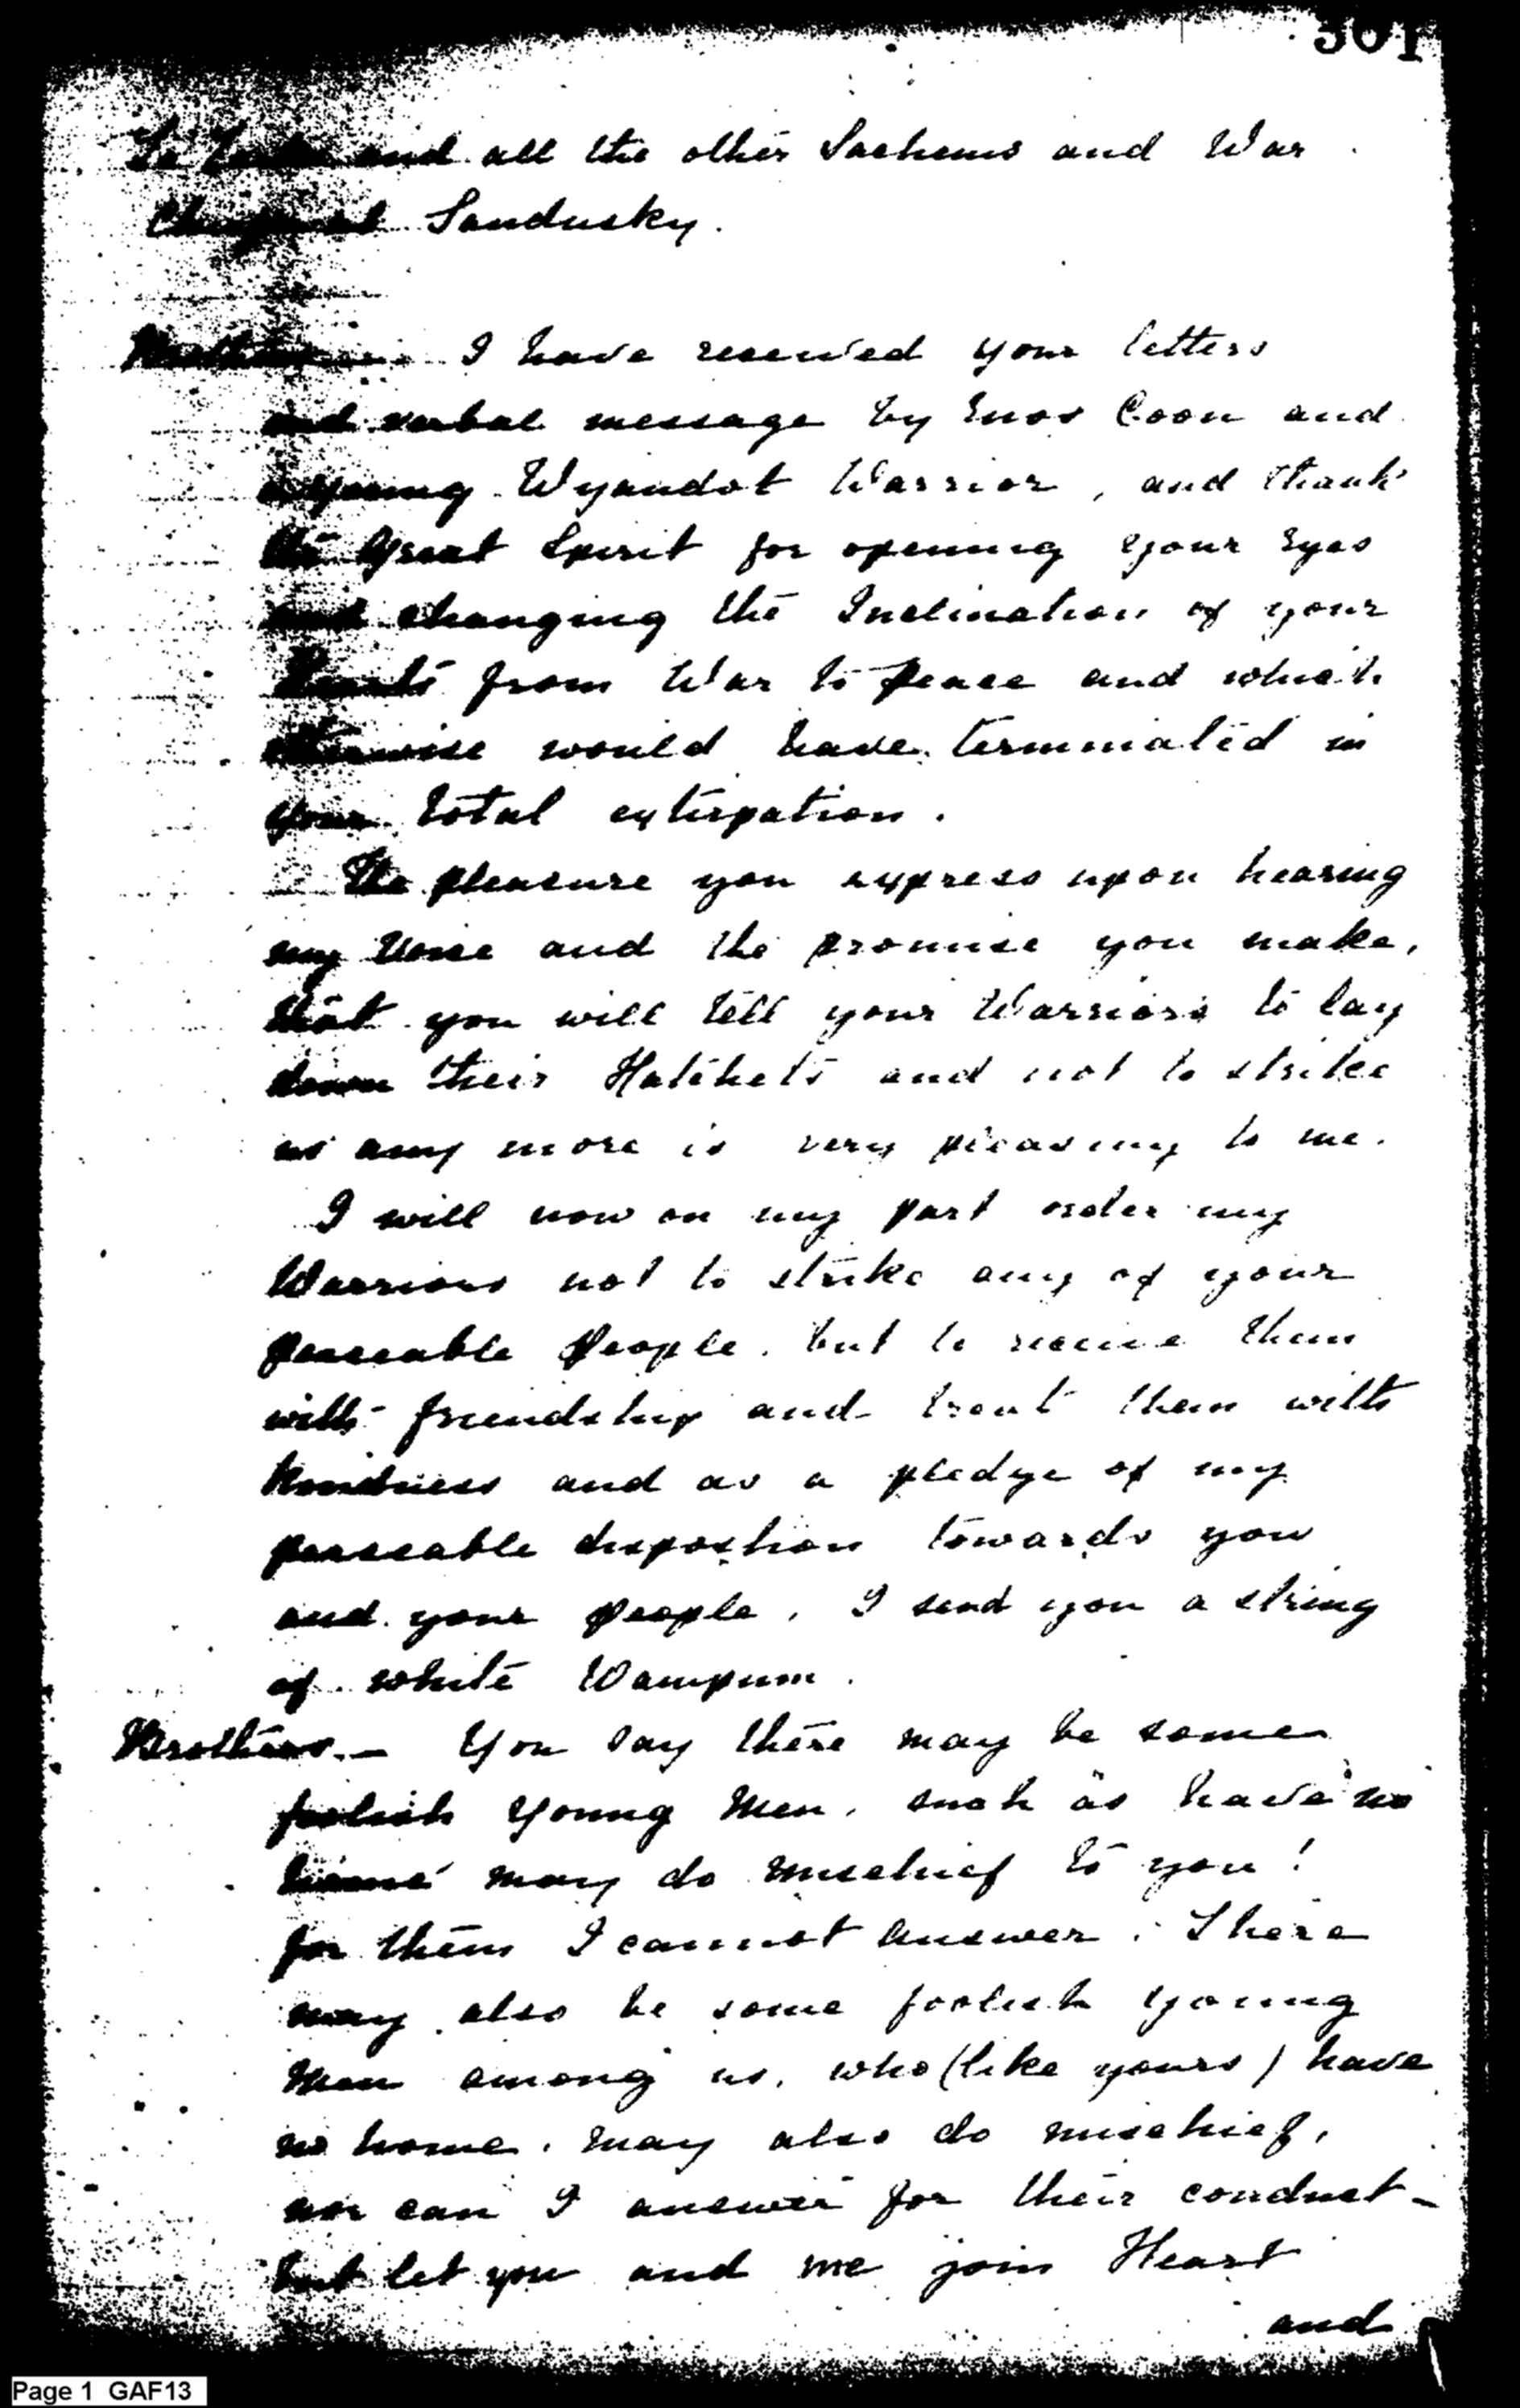 301
To and all the other Sachems and War
Chiefs at Sandusky.
Brothers I have received your letters
and verbal message by Enos Coon and
a young Wyandot Warrior, and thank
the Great Spirit for opening your Eyes
and changing the Inclination of your
Hearts from War to Peace and which
otherwise would have terminated in
your total extirpation.
The pleasure you express upon hearing
my Voice and the promise you make,
that you will tell your Warriors to lay
down their Hatchets and not to strike
us any more is very pleasing to me.
I will now on my part order my
Warriors not to strike any of your
peaceable People, but to receive them
with friendship and treat them with
kindness and as a pledge of my
peaceable disposition towards you
and your people, I send you a string
of white Wampum.
Brothers.— You say there may be some
foolish Young Men, such as have no
home may do mischief to you!
for them I cannot answer. There
may also be some foolish young
Men among us, who (like yours) have
no home, may also do mischief,
nor can I answer for their conduct—
but let you and me join Heart
and
Page 1 GAF13